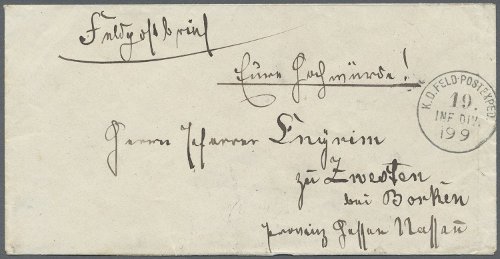 Feldpostbrief
Eure Hochwürde!
K.D. FELD-POSTEXPED.
19.
INF. DIV.
19 9
Herrn Pfarrer Enyrim
zu Zwesten
bei Borken
Provinz Hessen Nassau